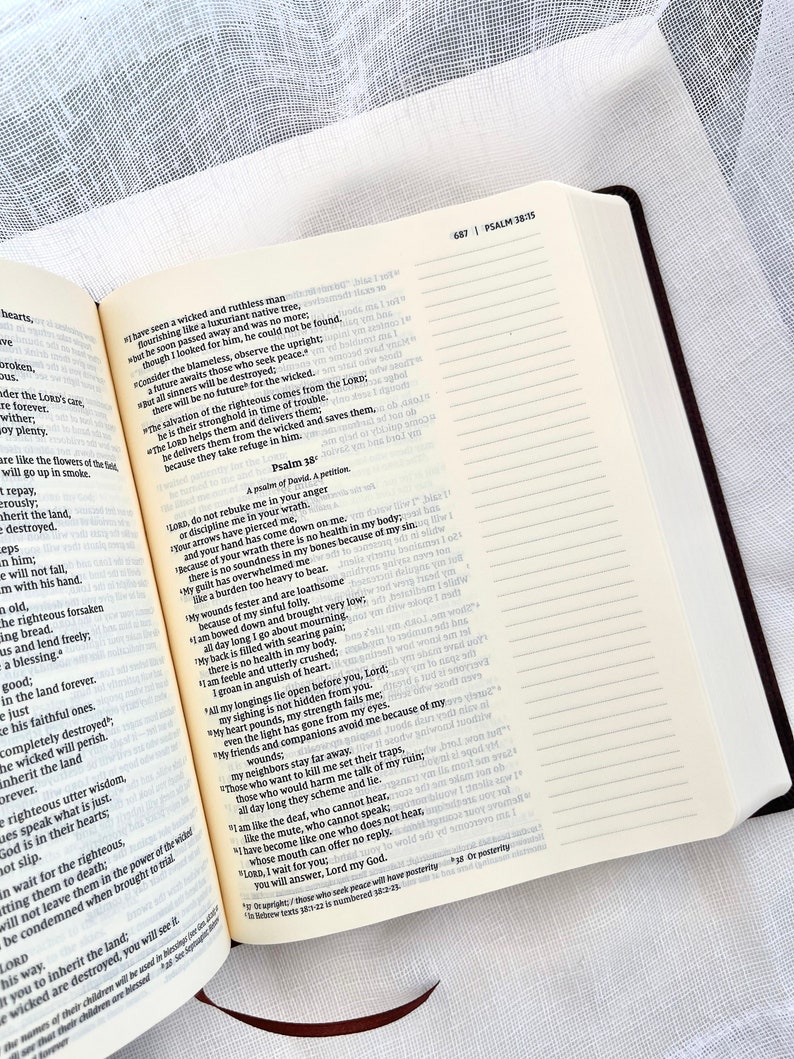 hearts,
broken,
under the LORD's care,
are forever.
wither;
enjoy plenty.
are like the flowers of the field,
will go up in smoke.
t repay,
erously;
inherit the land,
e destroyed.
teps
in him;
e will not fall,
m with his hand.
n old,
the righteous forsaken
ging bread.
us and lend freely;
e a blessing.a
good;
in the land forever.
e just
ke his faithful ones.
completely destroyedb;
he wicked will perish.
inherit the land
orever.
e righteous utter wisdom,
ues speak what is just.
God is in their hearts;
not slip.
in wait for the righteous,
tting them to death;
will not leave them in the power of the wicked
be condemned when brought to trial.
LORD
his way.
lt you to inherit the land;
e wicked are destroyed, you will see it.
the names of their children will be used in blessings (see Gen. 48:20); or
see that their children are blessed b 28 See Septuagint; Hebrew
d forever
687 | PSALM 38:15
35 I have seen a wicked and ruthless man
flourishing like a luxuriant native tree,
36 but he soon passed away and was no more;
though I looked for him, he could not be found.
37 Consider the blameless, observe the upright;
a future awaits those who seek peace.a
38 But all sinners will be destroyed;
there will be no futureb for the wicked.
39 The salvation of the righteous comes from the LORD;
he is their stronghold in time of trouble.
40 The LORD helps them and delivers them;
he delivers them from the wicked and saves them,
because they take refuge in him.
Psalm 38c
A psalm of David. A petition.
1 LORD, do not rebuke me in your anger
or discipline me in your wrath.
2 Your arrows have pierced me,
and your hand has come down on me.
3 Because of your wrath there is no health in my body;
there is no soundness in my bones because of my sin.
4 My guilt has overwhelmed me
like a burden too heavy to bear.
5 My wounds fester and are loathsome
because of my sinful folly.
6 I am bowed down and brought very low;
all day long I go about mourning.
7 My back is filled with searing pain;
there is no health in my body.
8 I am feeble and utterly crushed;
I groan in anguish of heart.
9 All my longings lie open before you, Lord;
my sighing is not hidden from you.
10 My heart pounds, my strength fails me;
even the light has gone from my eyes.
11 My friends and companions avoid me because of my
wounds;
my neighbors stay far away.
12 Those who want to kill me set their traps,
those who would harm me talk of my ruin;
all day long they scheme and lie.
13 I am like the deaf, who cannot hear,
like the mute, who cannot speak;
14 I have become like one who does not hear,
whose mouth can offer no reply.
15 LORD, I wait for you;
you will answer, Lord my God.
a 37 Or upright; / those who seek peace will have posterity b 38 Or posterity
c In Hebrew texts 38:1-22 is numbered 38:2-23.